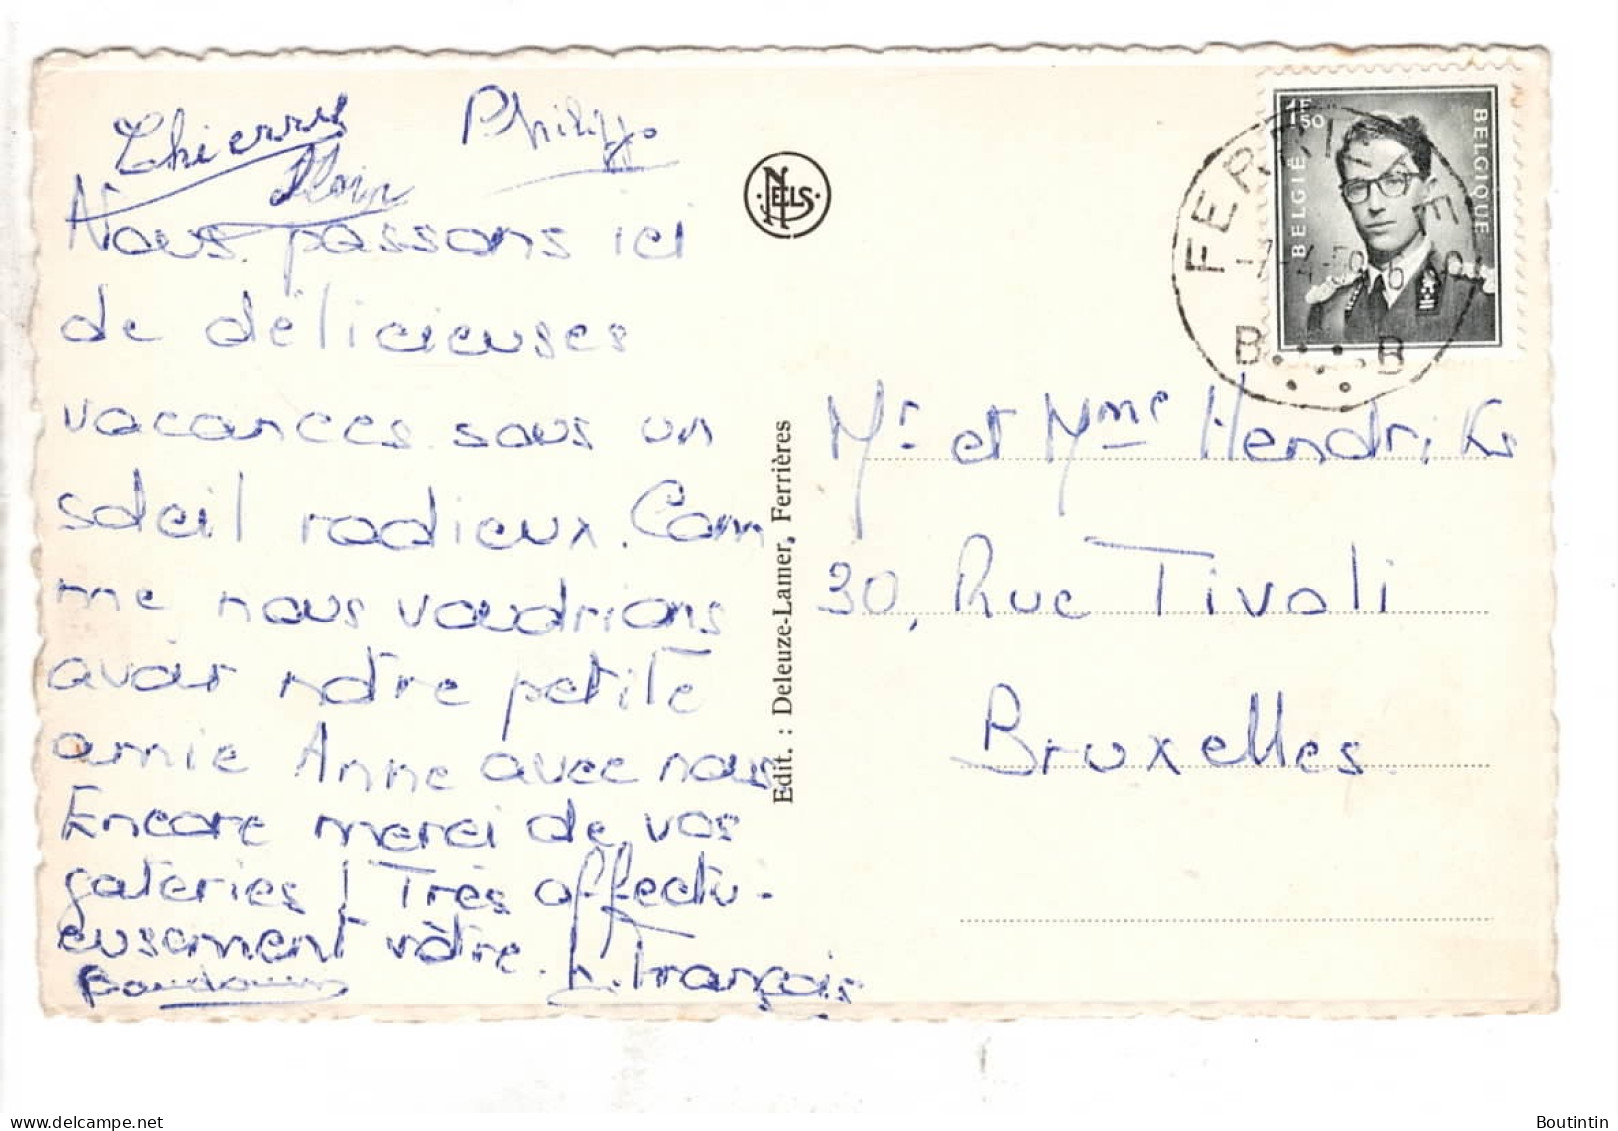 Thierry Philippe
Alain
Nous passons ici
de délicieuses
vacances sous un
soleil radieux. Com
me nous voudrions
avoir notre petite
amie Anne avec nous
Encore merci de vos
gateries ! Très affectu-
eusement vôtre.
Baudouin
François
NELS
Edit. : Deleuze-Lamer, Ferrières
1F50
BELGIË
BELGIQUE
FERRIERES
B B
Mr et Mme Hendrikx
30, Rue Tivoli
Bruxelles
delcampe.net
Boutintin